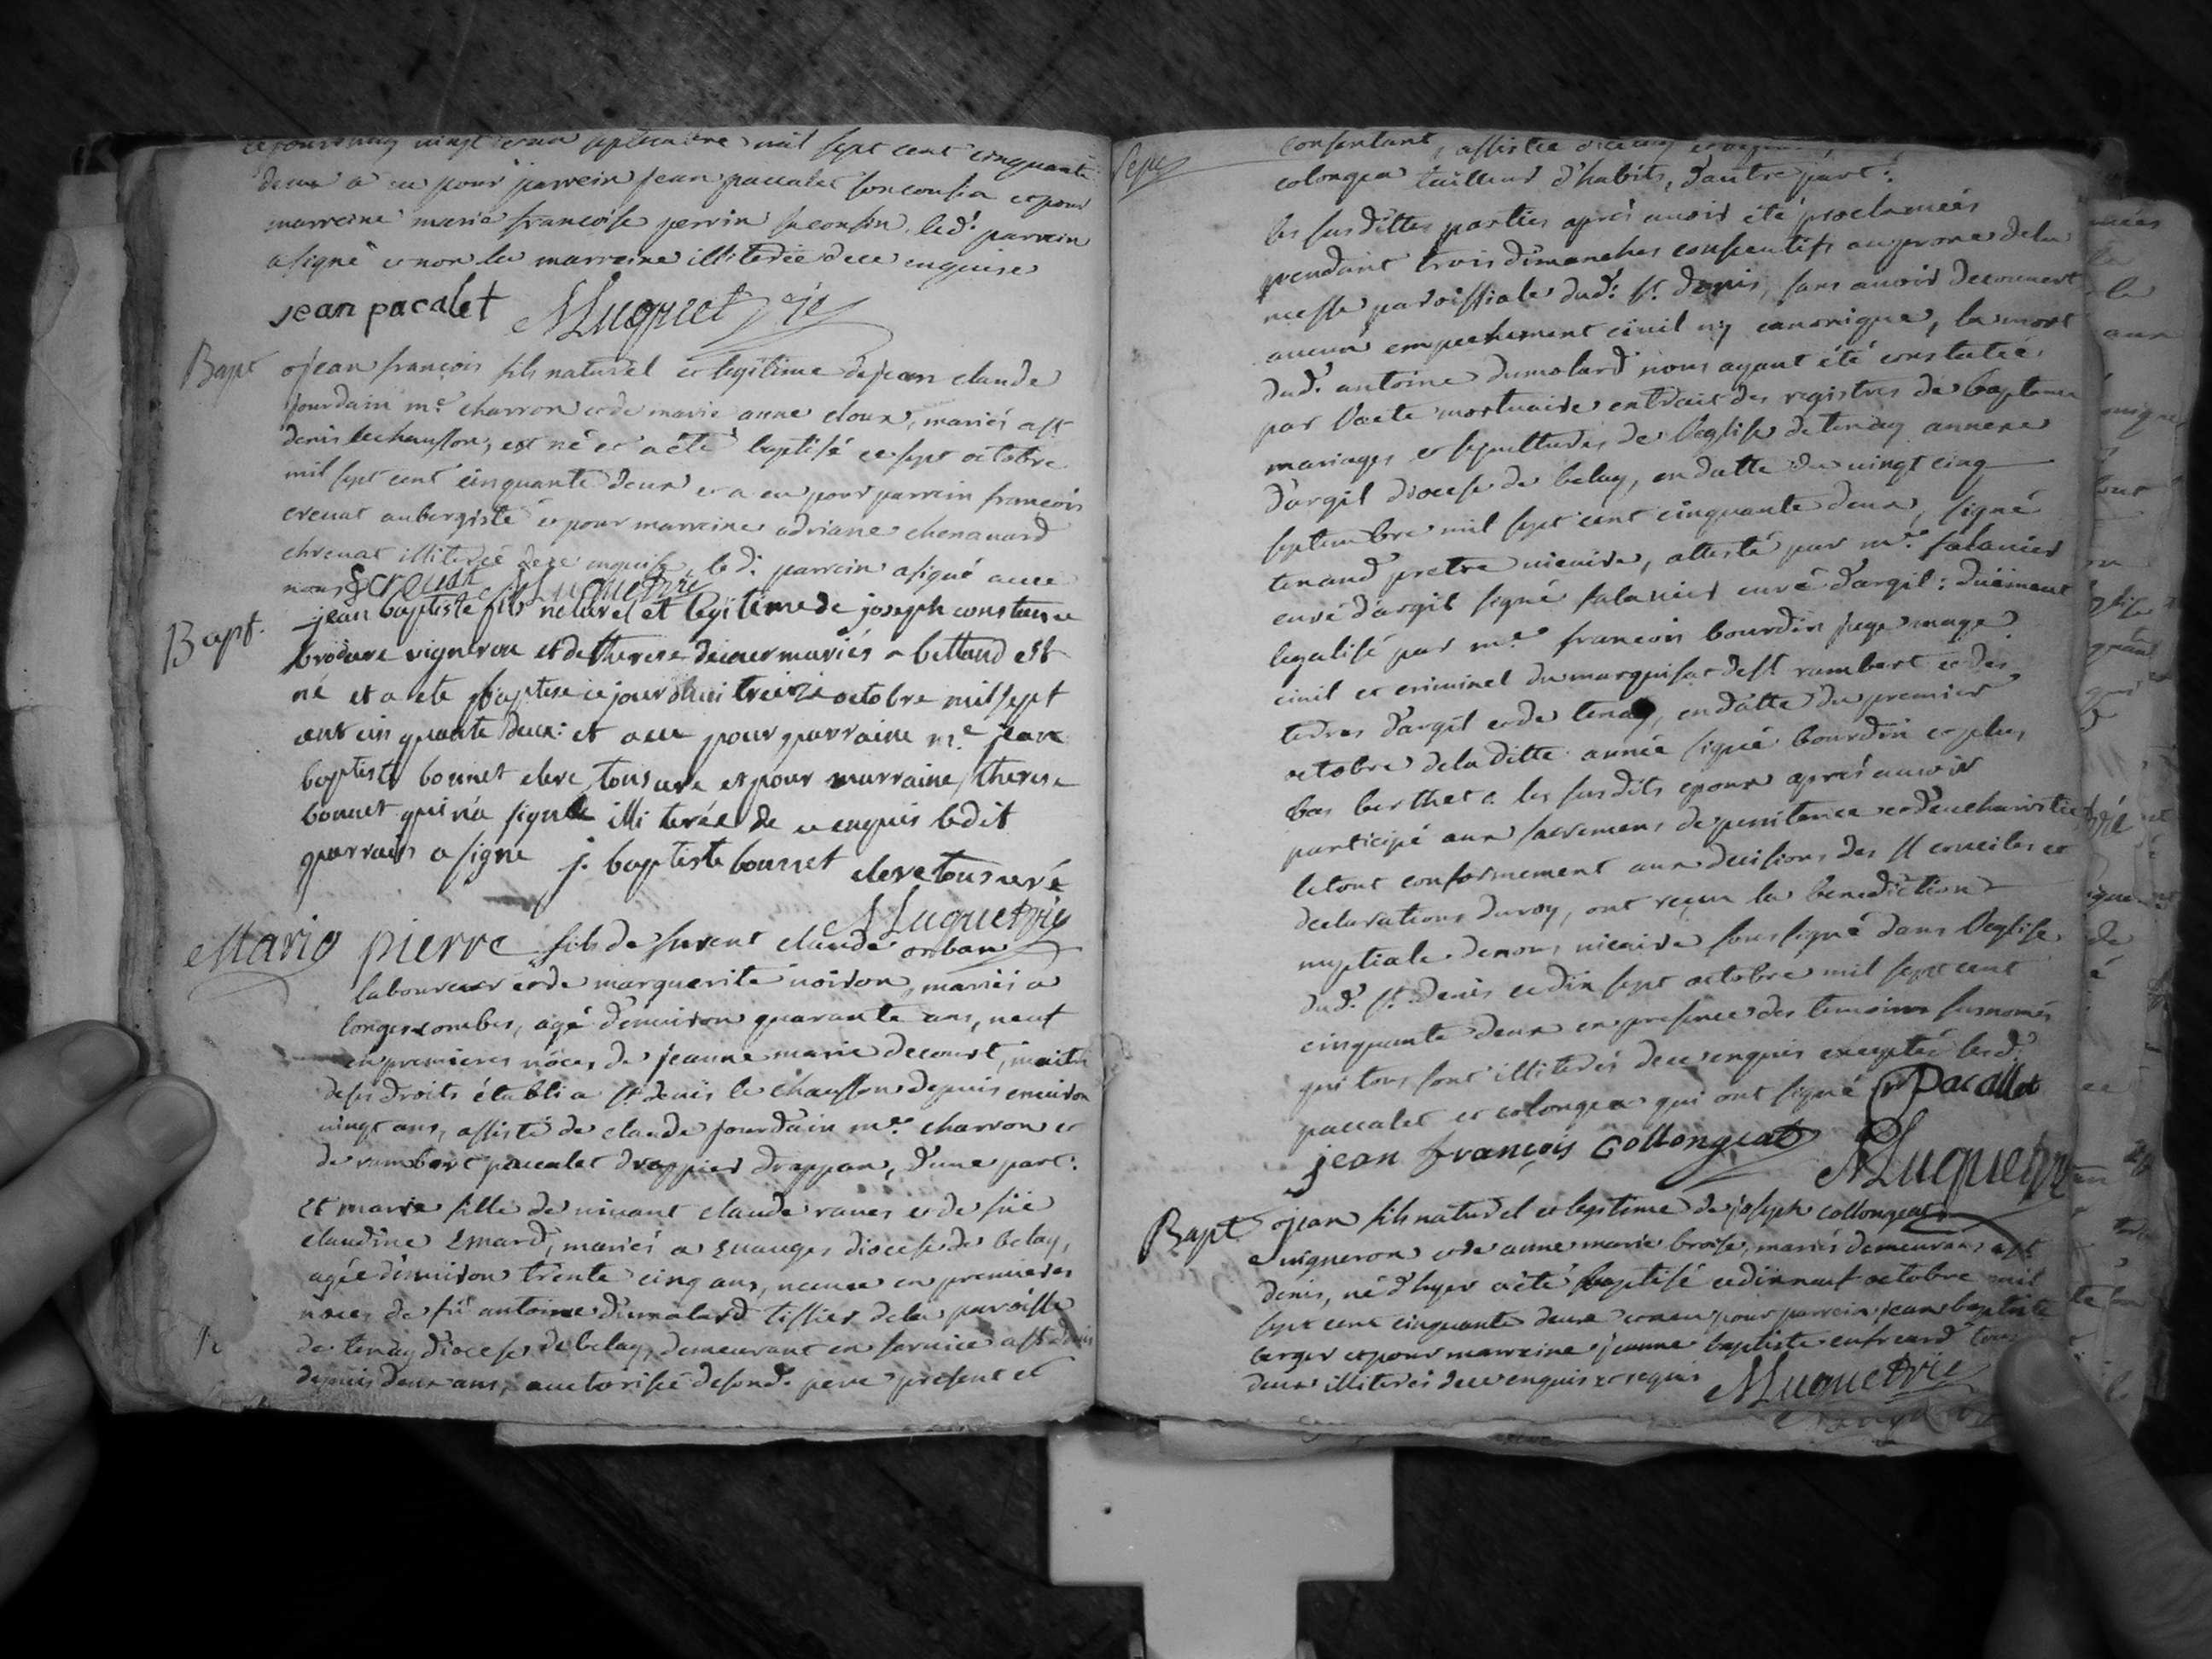 vingt septembre mil sept cent cinquante
deux a eu pour parrein jean paccalet son cousin et pour
marreine marie francoise perrin sa cousin. led. parrein
a signé et non la marreine illiterée de ce enquise
jean pacalet MLuquet vic
Bapt jean francois fils naturel et legitime de jean claude
jourdain me. charron et de marie anne doux, mariés a st
denis le chausson, est né et a été baptisé ce sept octobre
mil sept cent cinquante deux et a eu pour parrein francois
crevat aubergiste et pour marreine adriane chenavard
chrevat illiterée de ce enquise, led. parrein a signé avec
nous f crevat MLuquet vic
Bapt. jean baptiste fils naturel et legitime de joseph constance
brodure vigneron et de therese mariés a bettand est
né et a ete baptise ce jourdhui treize octobre mil sept
cent cinquante deux: et a eu pour parraine me jean
baptiste bonnet clerc tonsure et pour marraine therese
bonnet qui n'a signé illiterée de ce enquis ledit
parrain a signe j. baptiste bonnet clerc tonsuré
MLuquet vic
Mariage pierre fils de furent claude orban
laboureur et de marguerite noiron, mariés a
longecombes, agé d'environ quarante ans, veuf
en premieres nôces de jeanne marie decourt, maitre
de ses droits établi a st. denis le chausson depuis environ
vingt ans, assisté de claude jourdain me. charron et
de rambert paccalet drappier drappan, d'une part.
et marie fille de vivant claude ravet et de füe
claudine Emard, mariés a Evauges diocese de belay,
agée d'environ trente cinq ans, veuve en premieres
noces de fû antoine dumolard tissier de la paroisse
de tenay diocese de belay, demeurant en service a st denis
depuis deux ans, auctorisée de sond. pere present et
consentant, assistée
colongea tailleur d'habits, d'autre part.
les susdittes parties après avoir été proclameés
pendant trois dimanches consecutifs au prone de la
messe paroissiale dud. st. denis, sans avoir decouvert
aucun empechement civil ny canonique, la mort
dud. antoine dumolard nous ayant été constatée
par l'acte mortuaire extrait des registres de baptemes
mariages et sepultures de l'eglise de tenay annexe
d'argil diocese de belay, en datte du vingt cinq
septembre mil sept cent cinquante deux, signé
tenand pretre vicaire, attesté par me. salanier
curé d'argil signé salanier curé d'argil: düement
legalisé par me. francois bourdin juge mage
civil et criminel du marquisat de st. rambert et des
terres d'argil et de tenay, en datte du premier
octobre de la ditte année signé bourdin et plus
bas berthet a les susdits epoux après avoir
participé aux sacremens de penitence et d'eucharistie
le tout conformement aux decisions des sts conciles et
declarations du roy, ont reçu la benediction
nuptiale de nous vicaire soussigné dans l'eglise
dud. st. denis ce dix sept octobre mil sept cent
cinquante deux en presence des temoins susnomés
qui tous sont illiterés de ce enquis exceptés lesd.
paccalet et colongea qui ont signé r pacallet
jean françois Collongeat MLuquet vic
Bapt jean fils naturel et legitime de joseph collongeat
vigneron et de anne marie broise, mariés demeurans a st
denis, né d'hyer a été baptisé ce dixneuf octobre mil
sept cent cinquante deux et a eu pour parrein jean baptiste
berger et pour marreine jeanne baptiste tous
deux illiterés de ce enquis et requis MLuquet vic